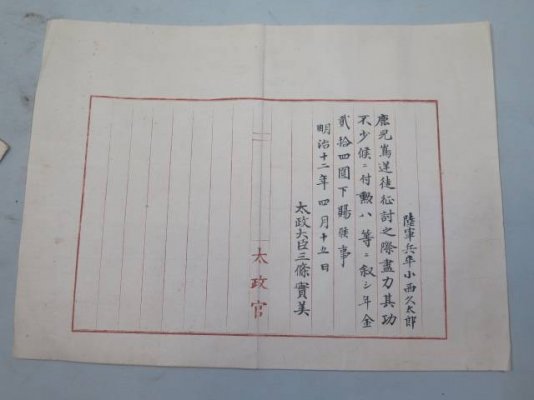 陸軍兵卒小西久太郎
鹿児嶌逆徒征討之際盡力其功
不少候ニ付勲八等ニ叙シ年金
貳拾四圓下賜候事
明治十二年四月十五日
太政大臣三條實美
太政官